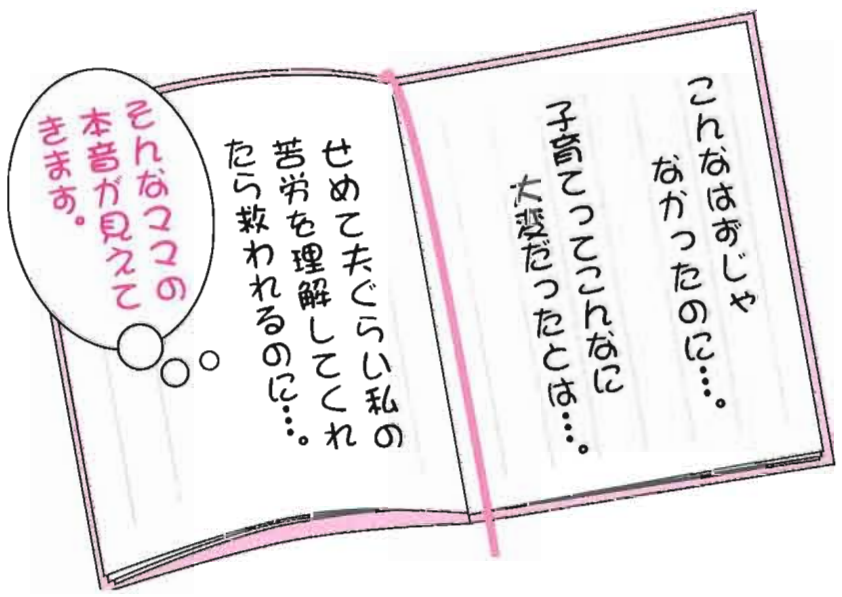 こんなはずじゃ
なかったのに…。
子育てってこんなに
大変だったとは…。
せめて夫ぐらい私の
苦労を理解してくれ
たら救われるのに…。
そんなママの
本音が見えて
きます。